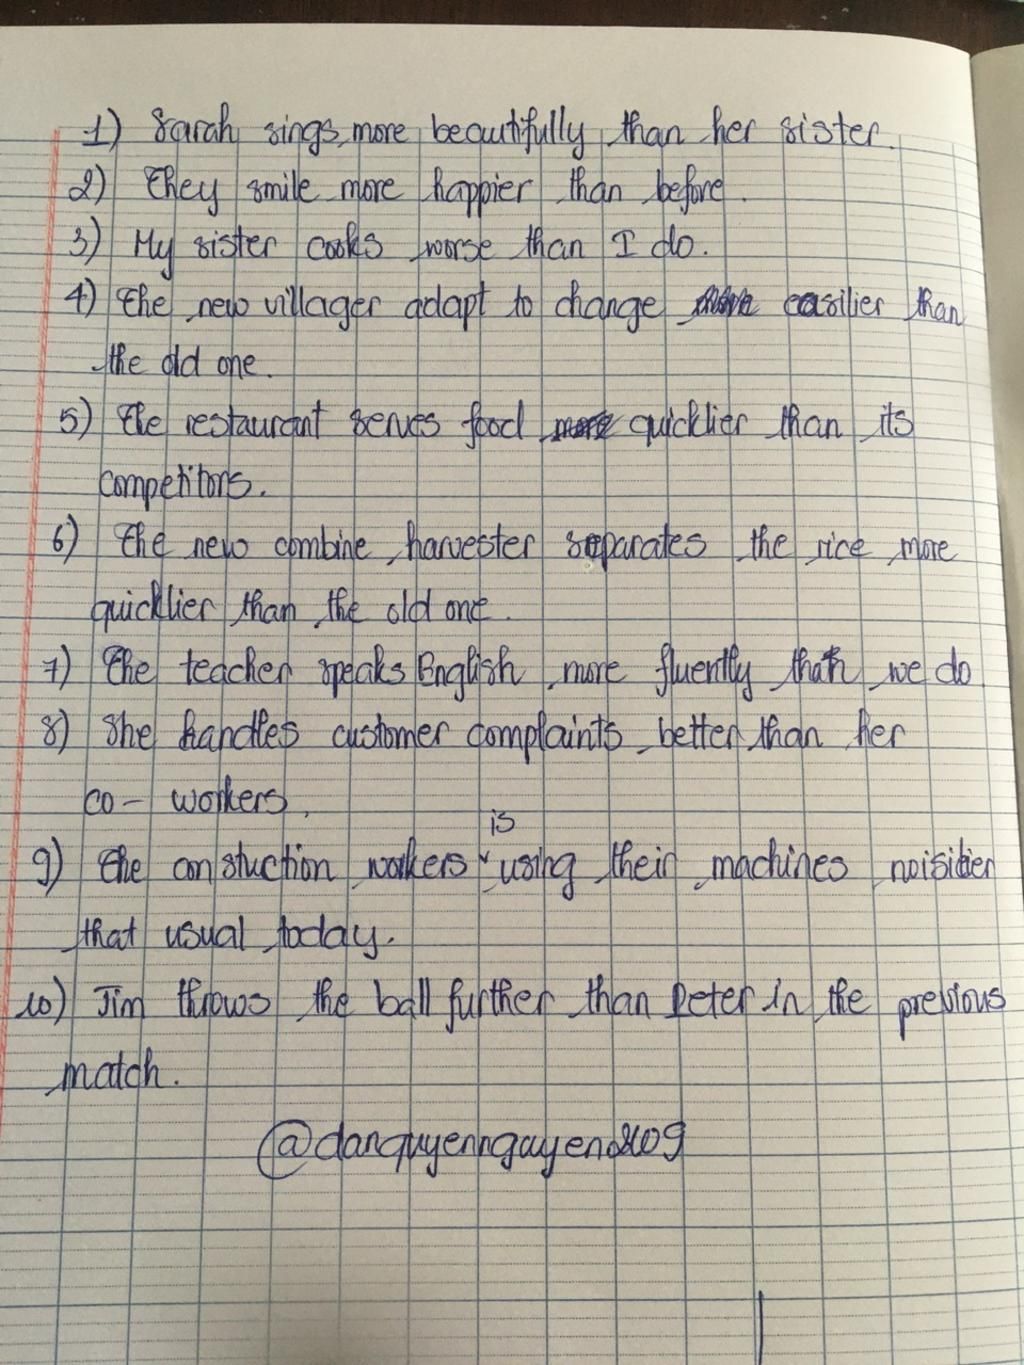 1) Sarah sings more beautifully than her sister.
2) They smile more happier than before.
3) My sister cooks worse than I do.
4) The new villager adapt to change easilier than
the old one.
5) The restaurant serves food quicklier than its
competitors.
6) The new combine harvester separates the rice more
quicklier than the old one.
7) The teacher speaks English more fluently than we do
8) She handles customer complaints better than her
co- workers.
is
9) The constuction workers using their machines
that usual today.
10) Jim throws the ball further than Peter in the previous
match.